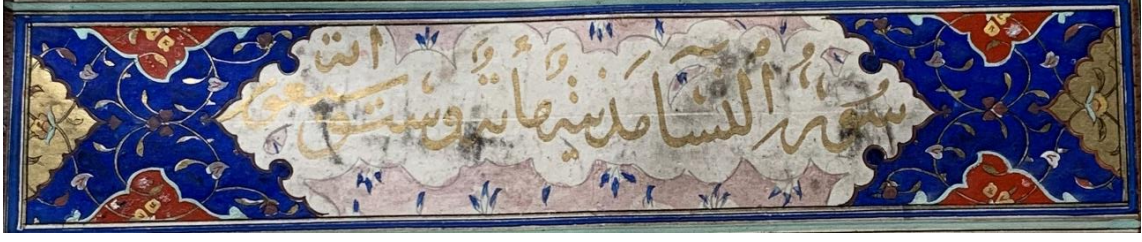 سورة النسا مدنية مائة وست وسبعون اية